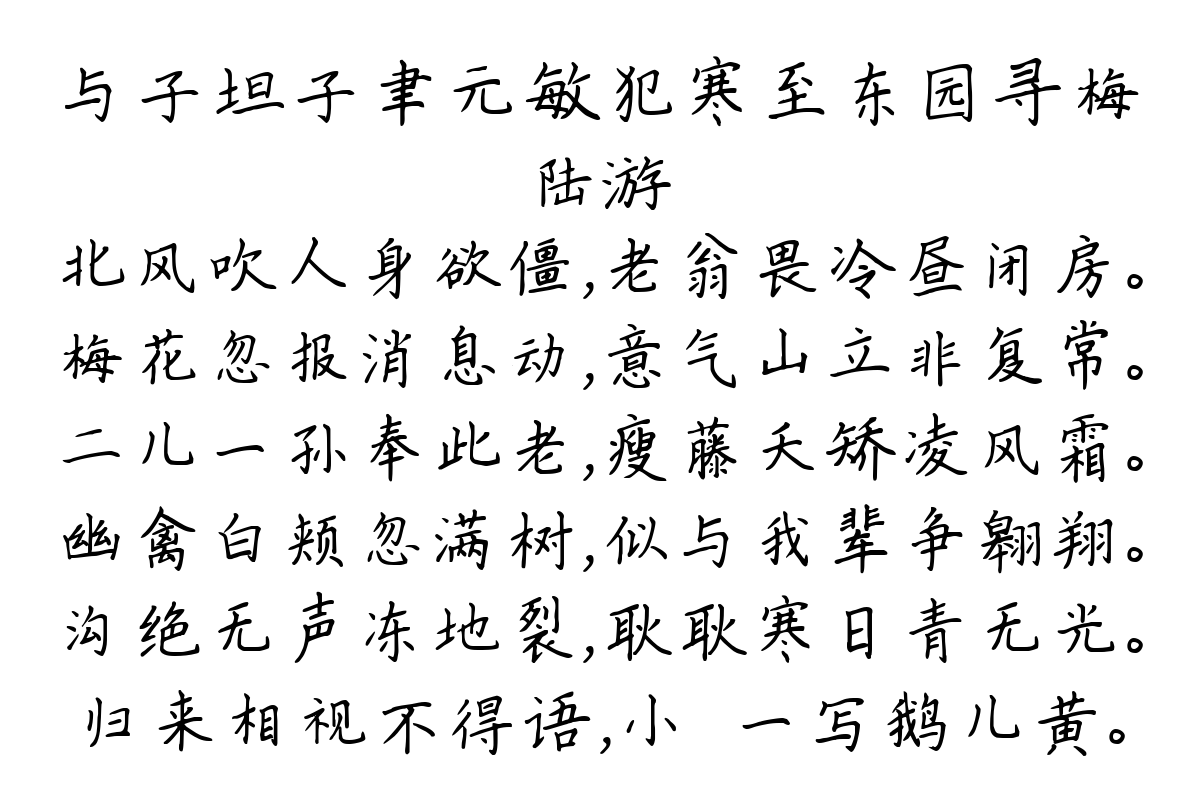 与子坦子聿元敏犯寒至东园寻梅
陆游
北风吹人身欲僵,老翁畏冷昼闭房。
梅花忽报消息动,意气山立非复常。
二儿一孙奉此老,瘦藤夭矫凌风霜。
幽禽白颊忽满树,似与我辈争翱翔。
沟绝无声冻地裂,耿耿寒日青无光。
归来相视不得语,小 一写鹅儿黄。